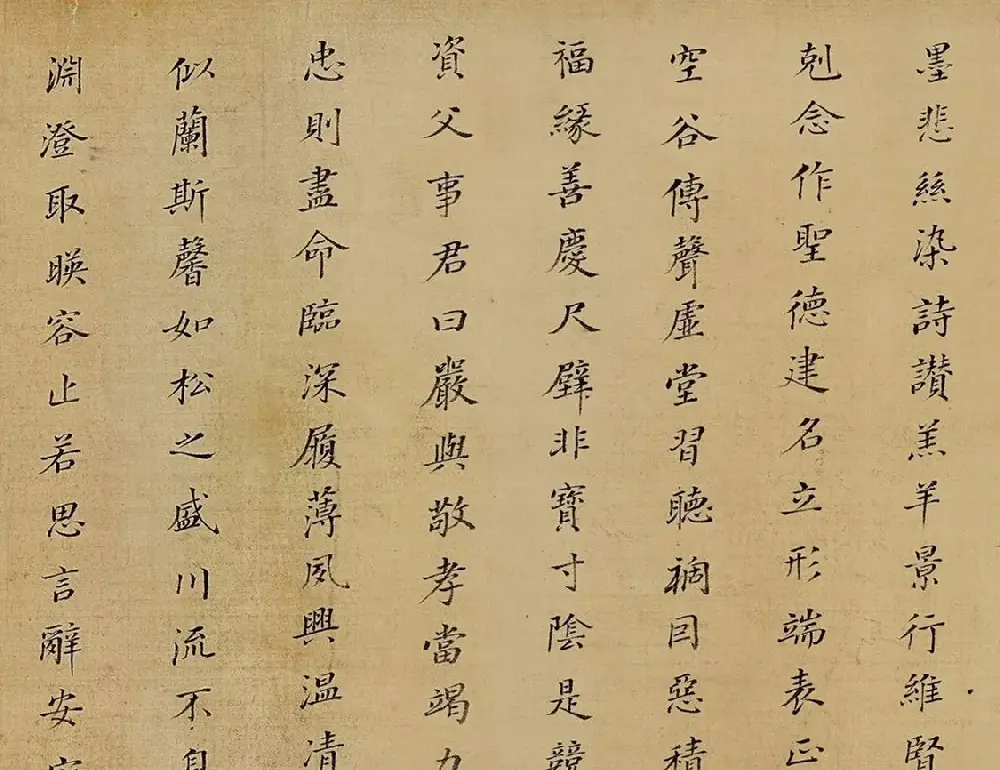 墨悲絲染詩讃羔羊景行維賢
剋念作聖德建名立形端表正
空谷傳聲虛堂習聽禍因惡積
福緣善慶尺璧非寶寸陰是競
資父事君曰嚴與敬孝當竭力
忠則盡命臨深履薄夙興温凊
似蘭斯馨如松之盛川流不息
淵澄取暎容止若思言辭安定